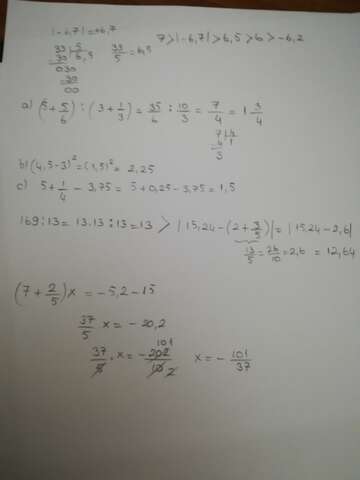 |-6,7| = +6,7
7 > |-6,7| > 6,5 > 6 > -6,2
33 | 5
30 | 6,5
030
30
00
33/5 = 6,5
a) (5 + 5/6) : (3 + 1/3) = 35/6 : 10/3 = 7/4 = 1 3/4
7 | 4
-4 | 1
3
b) (4,5-3)² = (1,5)² = 2,25
c) 5 + 1/4 - 3,75 = 5 + 0,25 - 3,75 = 1,5
169:13 = 13.13:13 = 13 > |15,24 - (2 + 3/5)| = |15,24 - 2,6|
13/5 = 26/10 = 2,6 = 12,64
(7 + 2/5) x = -5,2 - 15
37/5 x = -20,2
101
37/5 . x = - 202/10 2 x = - 101/37